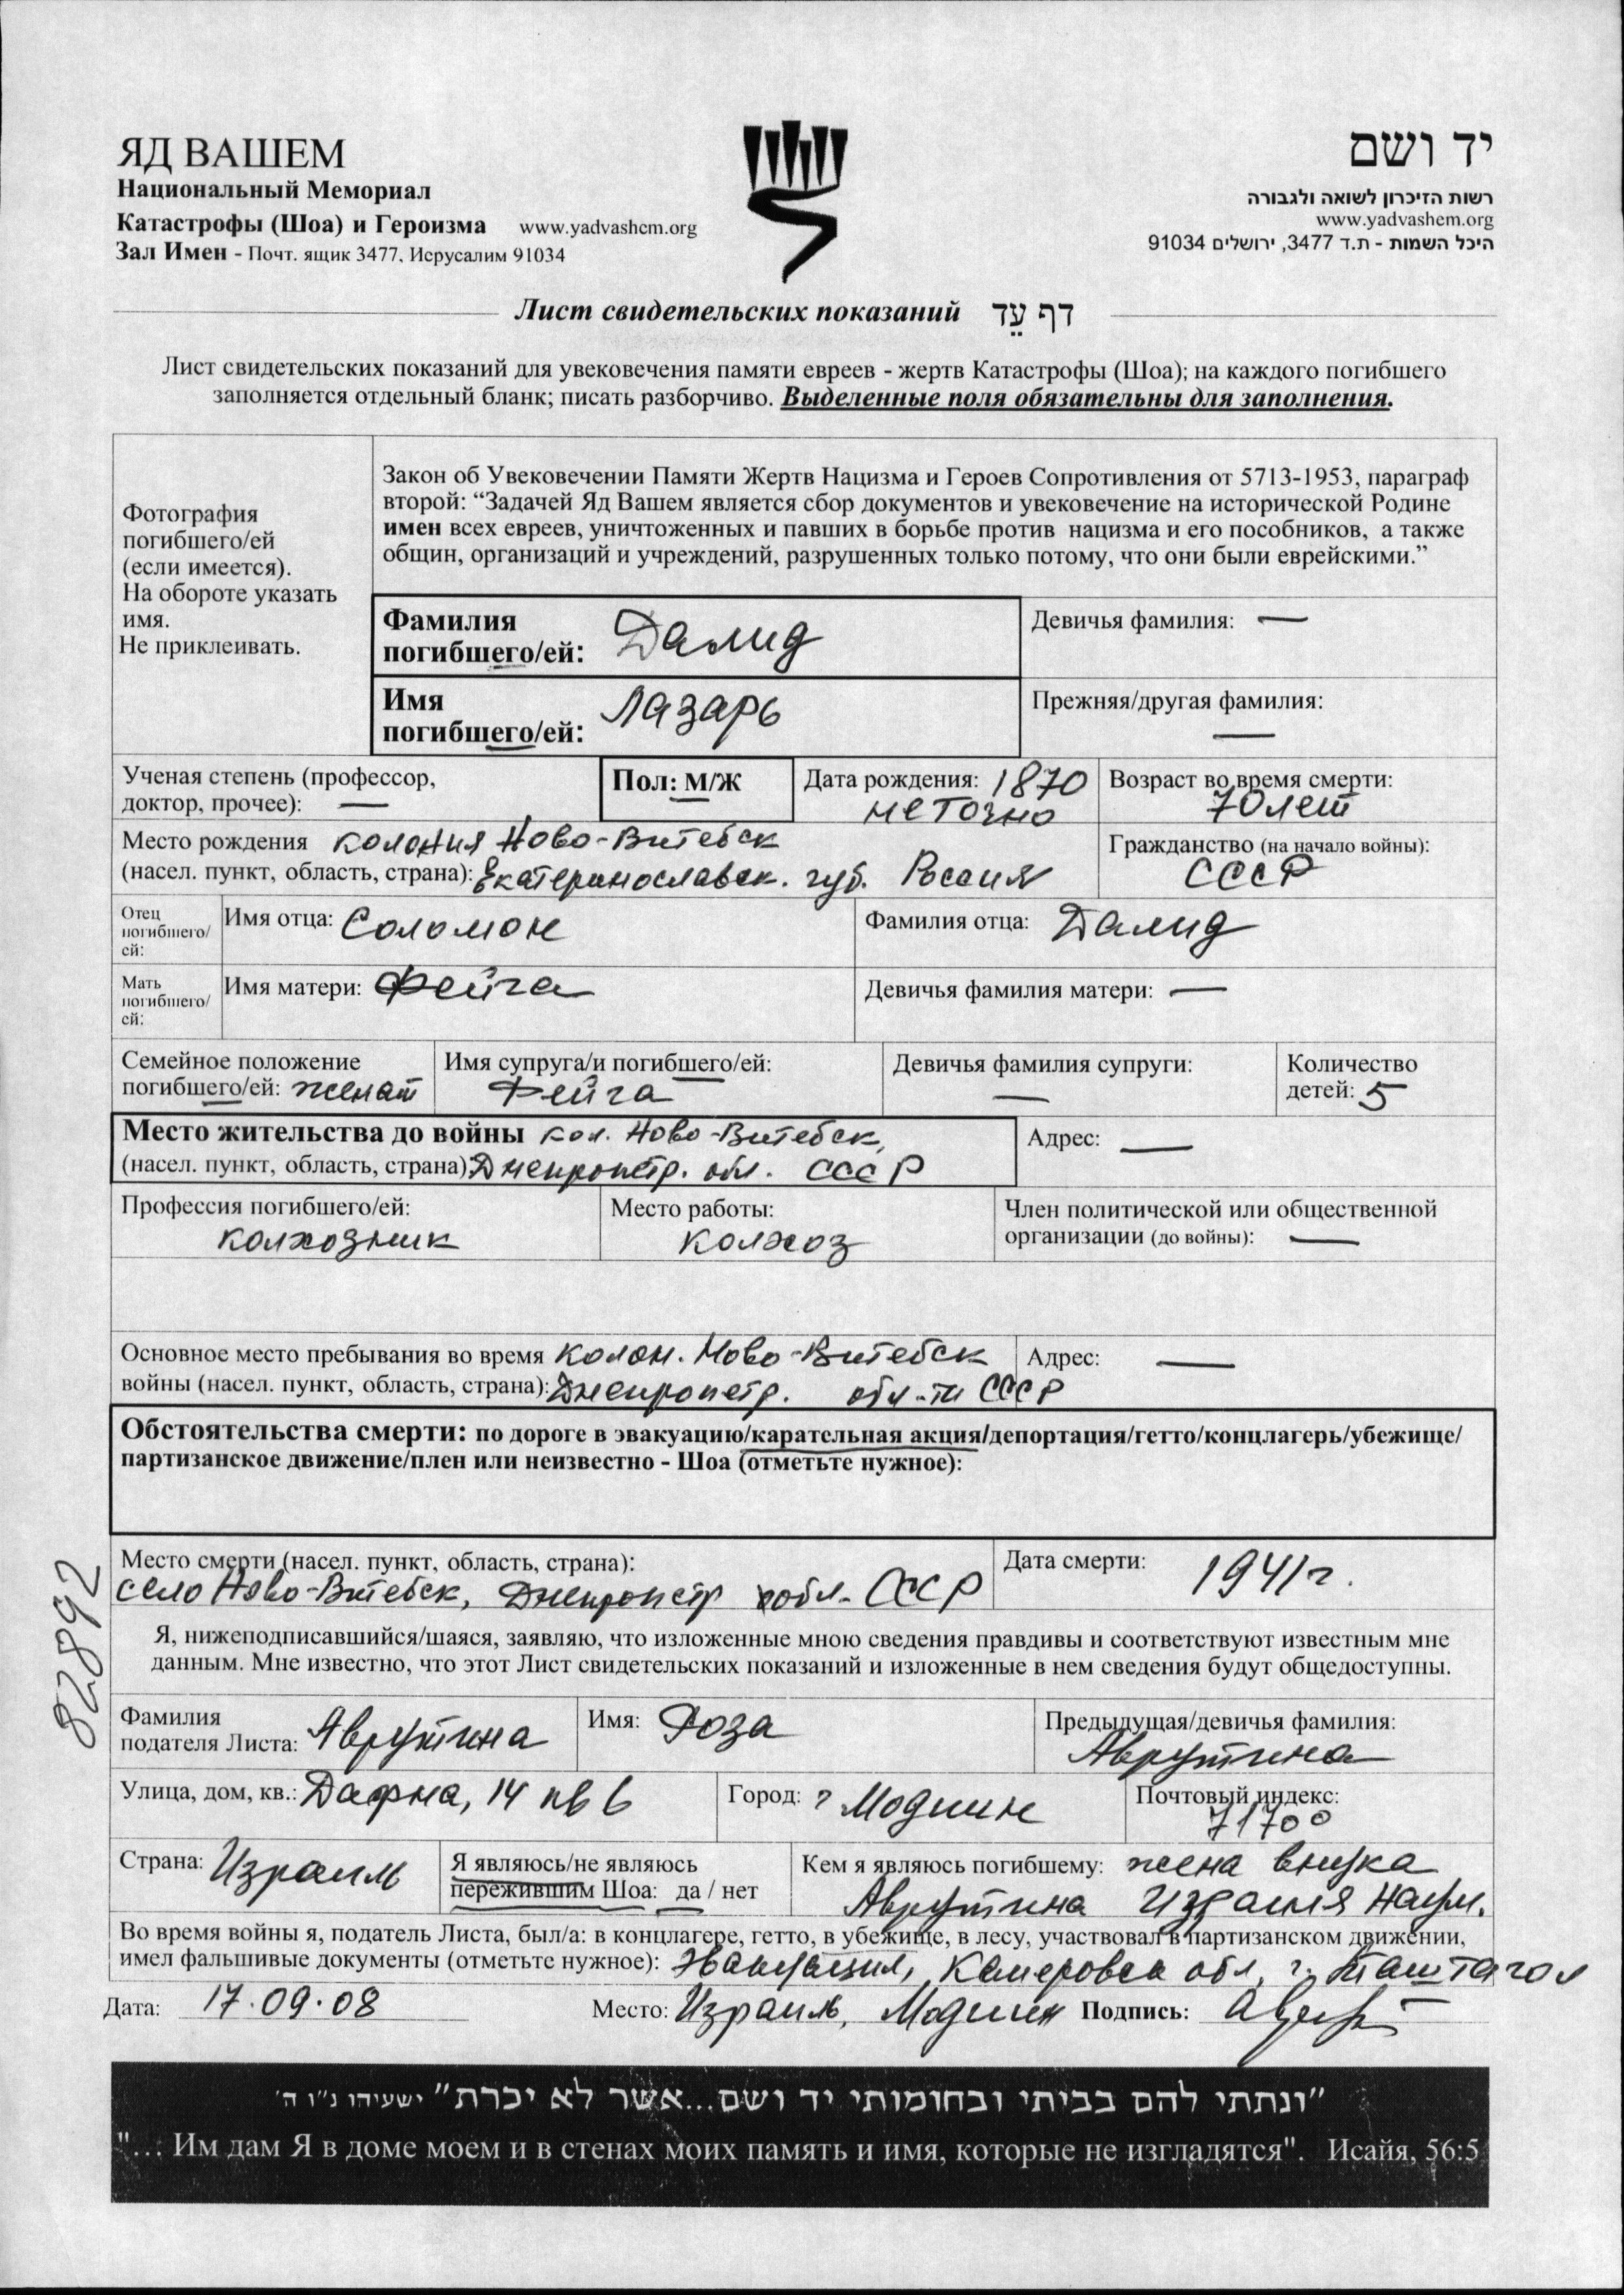 ЯД ВАШЕМ
Национальный Мемориал
Катастрофы (Шоа) и Героизма www.yadvashem.org
Зал Имен - Почт. ящик 3477, Иерусалим 91034
יד ושם
רשות הזיכרון לשואה ולגבורה
www.yadvashem.org
היכל השמות - ת.ד 3477, ירושלים 91034
Лист свидетельских показаний דף עֵד
Лист свидетельских показаний для увековечения памяти евреев - жертв Катастрофы (Шоа); на каждого погибшего
заполняется отдельный бланк; писать разборчиво. Выделенные поля обязательны для заполнения.
Фотография
погибшего/ей
(если имеется).
На обороте указать
имя.
Не приклеивать.
Закон об Увековечении Памяти Жертв Нацизма и Героев Сопротивления от 5713-1953, параграф
второй: “Задачей Яд Вашем является сбор документов и увековечение на исторической Родине
имен всех евреев, уничтоженных и павших в борьбе против нацизма и его пособников, а также
общин, организаций и учреждений, разрушенных только потому, что они были еврейскими.”
Фамилия
погибшего/ей: Далид
Девичья фамилия: —
Имя
погибшего/ей: Лазарь
Прежняя/другая фамилия:
—
Ученая степень (профессор,
доктор, прочее): —
Пол: М/Ж
Дата рождения: 1870
неточно
Возраст во время смерти:
70 лет
Место рождения колония Ново-Витебск
(насел. пункт, область, страна): Екатеринославск. губ. Россия
Гражданство (на начало войны):
СССР
Отец
погибшего/
ей:
Имя отца: Соломон
Фамилия отца: Далид
Мать
погибшего/
ей:
Имя матери: Фейга
Девичья фамилия матери: —
Семейное положение
погибшего/ей: женат
Имя супруга/и погибшего/ей:
Фейга
Девичья фамилия супруги:
—
Количество
детей: 5
Место жительства до войны кол. Ново-Витебск,
(насел. пункт, область, страна) Днепропетр. обл. СССР
Адрес: —
Профессия погибшего/ей:
колхозник
Место работы:
колхоз
Член политической или общественной
организации (до войны): —
Основное место пребывания во время колон. Ново-Витебск
войны (насел. пункт, область, страна): Днепропетр. обл-ти СССР
Адрес: —
Обстоятельства смерти: по дороге в эвакуацию/карательная акция/депортация/гетто/концлагерь/убежище/
партизанское движение/плен или неизвестно - Шоа (отметьте нужное):
Место смерти (насел. пункт, область, страна):
село Ново-Витебск, Днепропетр обл. СССР
Дата смерти: 1941г.
82892
Я, нижеподписавшийся/шаяся, заявляю, что изложенные мною сведения правдивы и соответствуют известным мне
данным. Мне известно, что этот Лист свидетельских показаний и изложенные в нем сведения будут общедоступны.
Фамилия
подателя Листа: Аврутина
Имя: Роза
Предыдущая/девичья фамилия:
Аврутина
Улица, дом, кв.: Дафна, 14 кв 6
Город: г Модиин
Почтовый индекс:
71700
Страна: Израиль
Я являюсь/не являюсь
пережившим Шоа: да / нет
Кем я являюсь погибшему: жена внука
Аврутина Израиля Наум.
Во время войны я, податель Листа, был/а: в концлагере, гетто, в убежище, в лесу, участвовал в партизанском движении,
имел фальшивые документы (отметьте нужное): Эвакуация, Кемеровск обл, г. Таштагол
Дата: 17.09.08
Место: Израиль, Модиин Подпись:
”ונתתי להם בביתי ובחומותי יד ושם...אשר לא יכרת” ישעיהו נ״ו ה׳
"... Им дам Я в доме моем и в стенах моих память и имя, которые не изгладятся". Исайя, 56:5